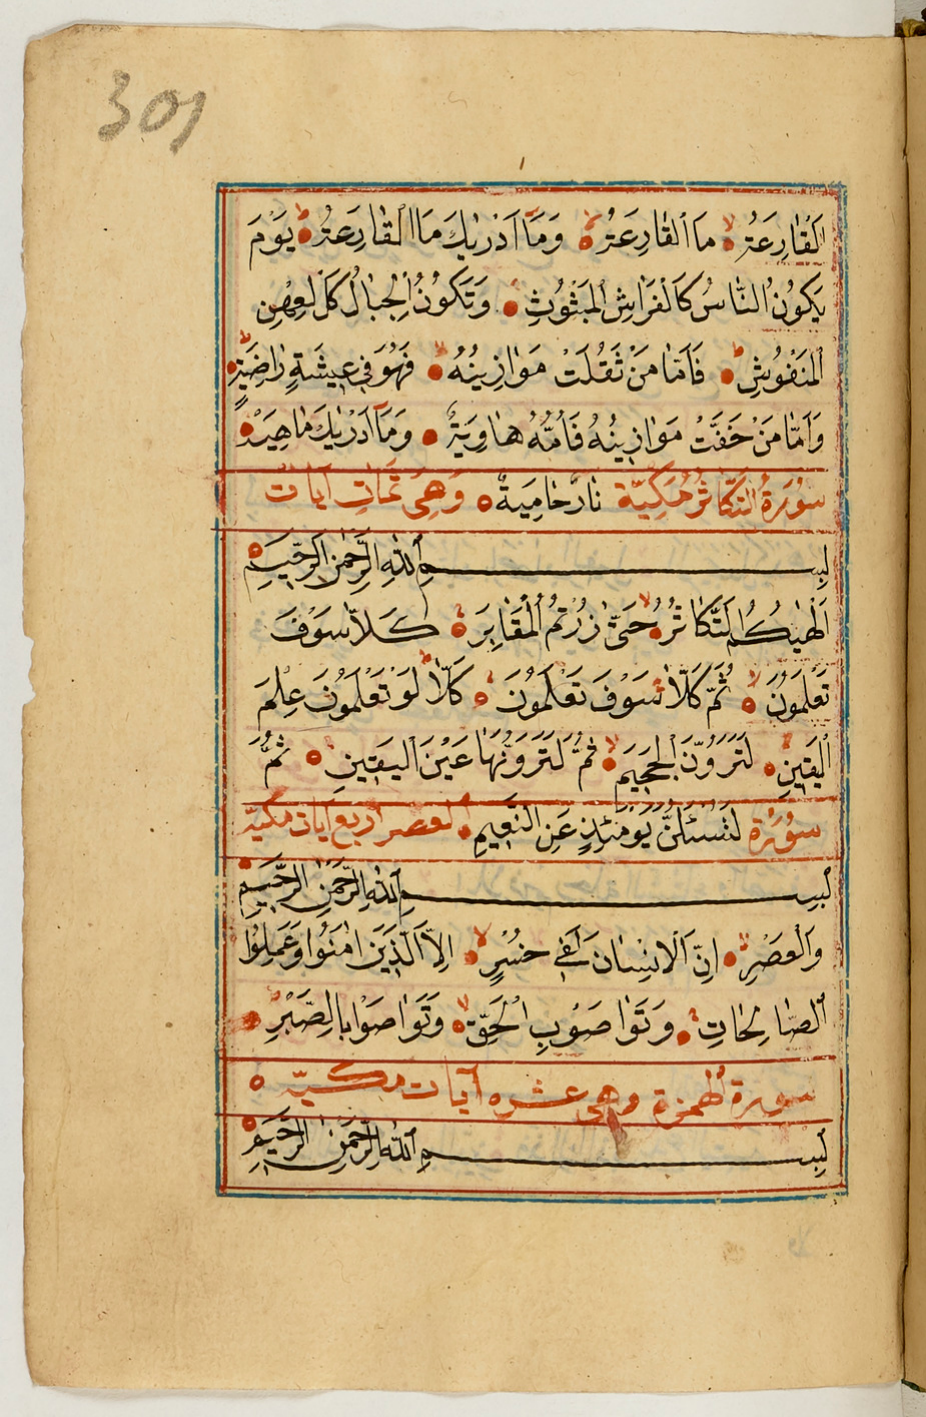 301
اَلْقَارِعَةُ مَا الْقَارِعَةُ وَمَآ اَدْرٰيكَ مَا الْقَارِعَةُ يَوْمَ
يَكُونُ النَّاسُ كَالْفَرَاشِ الْمَبْثُوثِ وَتَكُونُ الْجِبَالُ كَالْعِهْنِ
الْمَنْفُوشِ فَاَمَّا مَنْ ثَقُلَتْ مَوَازِينُهُ فَهُوَ فِي عِيشَةٍ رَاضِيَةٍ
وَاَمَّا مَنْ خَفَّتْ مَوَازِينُهُ فَاُمُّهُ هَاوِيَةٌ وَمَآ اَدْرٰيكَ مَا هِيَهْ
سُورَةُ التَّكَاثُرُ مَكِيَّة نَارٌ حَامِيَةٌ وَهِيَ ثَمَانِ آيَات
بِسْمِ اللّٰهِ الرَّحْمٰنِ الرَّحِيمِ
اَلْهٰيكُمُ التَّكَاثُرُ حَتّٰى زُرْتُمُ الْمَقَابِرَ كَلَّا سَوْفَ
تَعْلَمُونَ ثُمَّ كَلَّا سَوْفَ تَعْلَمُونَ كَلَّا لَوْ تَعْلَمُونَ عِلْمَ
الْيَقِينِ لَتَرَوُنَّ الْجَحِيمَ ثُمَّ لَتَرَوُنَّهَا عَيْنَ الْيَقِينِ ثُمَّ
سُورَة لَتُسْئَلُنَّ يَوْمَئِذٍ عَنِ النَّعِيمِ العصر اربع آيات مكية
بِسْمِ اللّٰهِ الرَّحْمٰنِ الرَّحِيمِ
وَالْعَصْرِ اِنَّ الْاِنْسَانَ لَفِي خُسْرٍ اِلَّا الَّذِينَ اٰمَنُوا وَعَمِلُوا
الصَّالِحَاتِ وَتَوَاصَوْا بِالْحَقِّ وَتَوَاصَوْا بِالصَّبْرِ
سورة الهمزة وهى عشره آيات مكيّه
بِسْمِ اللّٰهِ الرَّحْمٰنِ الرَّحِيمِ